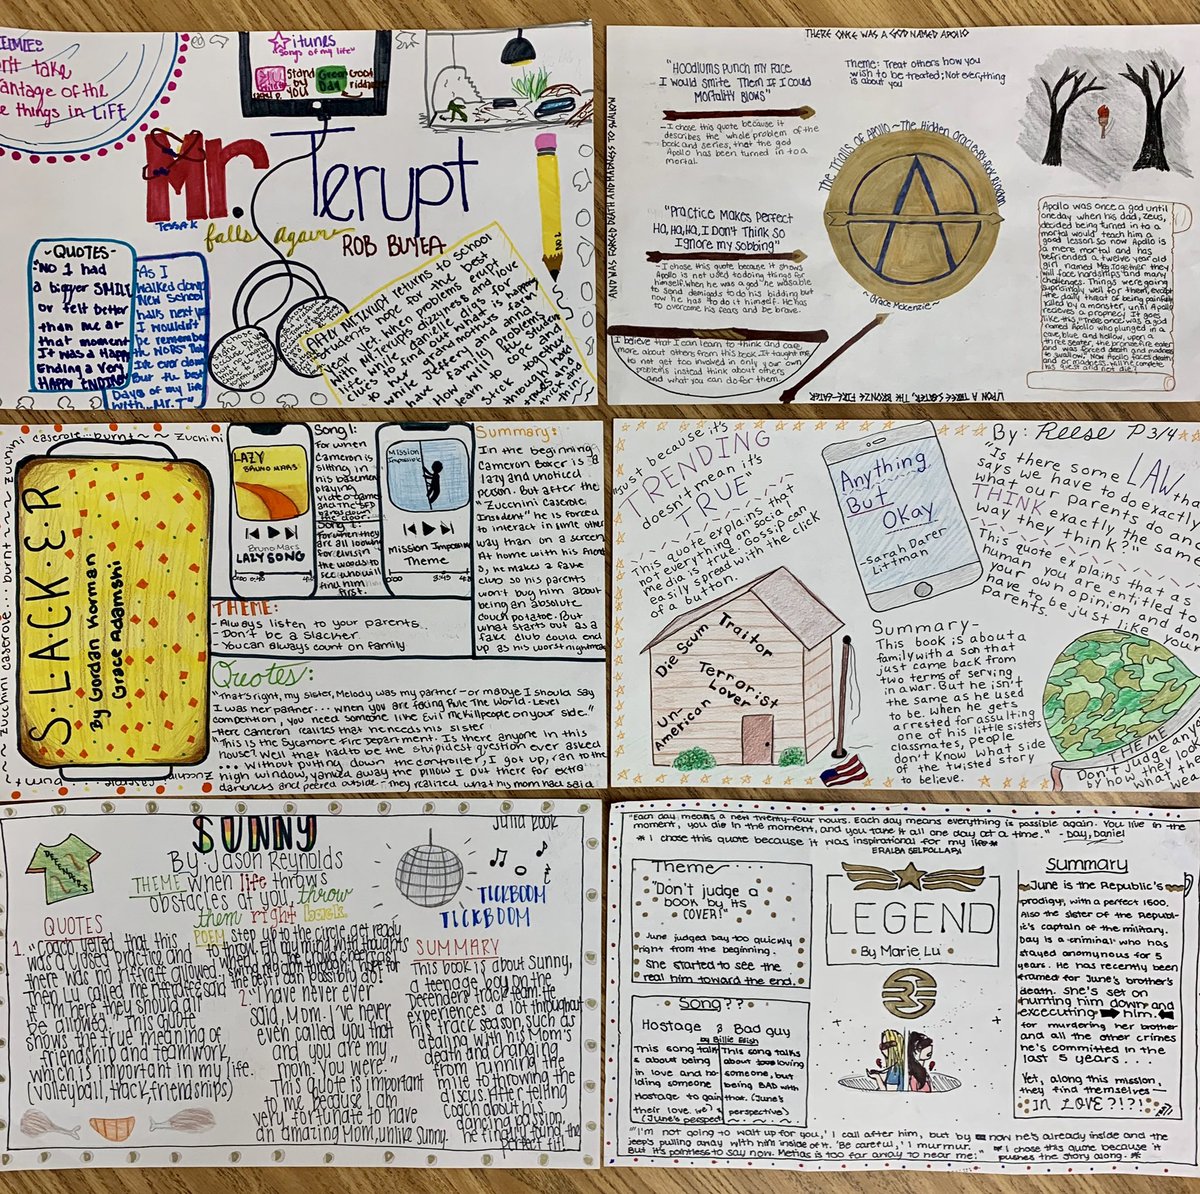 THEME:
Don't take
advantage of the
little things in LiFE
itunes
songs of my life
Stand
by
you
Green
Day
Good
riddance
Mr. Terupt
falls again
ROB BUYEA
Tessa K
No.2
~QUOTES~
"NO 1 had
a bigger SMILE
or felt better
than me at
that moment
It was a Happy
Ending a Very
HAPPY ENDING"
"As I
walked down
New School
halls next year
I wouldn't
be remember
the NOBS That
I've ever done
But the best
Days of my life
with... Mr. T"
After Mr. Terupt returns to school
THERE ONCE WAS A GOD NAMED APOLLO
"Hoodlums Punch my Face
I would Smite Them If I Could
Mortality Blows"
- I chose this quote because it
describes the whole problem of the
book and series, that the god
Apollo has been turned in to a
mortal.
"Practice Makes Perfect
Ha, Ha, Ha, I Don't Think So
Ignore my Sobbing"
- I chose this quote because it shows
Apollo is not used to doing things for
himself. When he was a god he was able
to send demigods to do his bidding but
now he has to do it himself. He has
to overcome his fears and be brave.
I believe that I can learn to think and care
more about others from this book. It taught me
to not get too involved in only your own
problems instead think about others
and what you can do for them.
AND WAS FORCED DEATH AND MADNESS TO SWALLOW
The Trials of Apollo ~ The Hidden Oracle ~ By Rick Riordan
~Grace McKenzie~
Theme: Treat others how you
wish to be treated; Not everything
is about you
Apollo was once a god until
one day when his dad, Zeus,
decided being turned in to a
mortal would teach him a
good lesson so now Apollo is
a mere mortal and has
befriended a twelve year old
girl named Meg. Together they
will face hardships and many
challenges. Things were going
surprisingly well for them, except
the daily threat of being painfully
killed by a monster, until Apollo
recieves a prophecy. It goes
like this, "There once was a god
named Apollo who plunged in a
cave, blue and hollow, upon a
three seater, the bronze fire eater
and was forced death and madness
to swallow." Now Apollo faces death
and or madness, will he complete
his quest and not die!
UPON A THREE SEATER, THE BRONZE FIRE-EATER
zuchini caserole...burnt~~zuchini
S·L·A·C·K·E·R
By Gordan Korman
Grace Adamshi
LAZY
BRUNO MARS
Bruno Mars
LAZY SONG
Song 1:
for when
Cameron is
sitting in
his basement
playing
video games
and the SFD
for when they
are all looking
for elvis in
the woods to
see who will
find him
first.
Mission
Impossible
Mission Impossible
Theme
Summary:
In the beginning
Cameron Boxer is a
lazy and unoticed
person. But after the
"Zucchini Caserole
Insident" he is forced
to interact in some other
way than on a screen.
At home with his friend
D, he makes a fake
club so his parents
won't bug him about
being an absolute
couch potatoe. But
what starts out as a
fake club could end
up as his worst nightmare
THEME:
- Always listen to your parents.
- Don't be a Slacker
- You can always count on family
Quotes:
"That's right, my sister, Melody was my partner - or maybe I should say
I was her partner... when you are facing Rule The World-Level
competition, you need someone like Evil McKillPeople on your side."
- Here Cameron realizes that he needs his sister
"This is the Sycamore Fire Department. Is there anyone in this
house? Well that had to be the stupidest question ever asked
... Without putting down the controller, I got up, ran to the
high window, yanked away the pillow I put there for extra
darkness and peered outside." - They realized what his mom had said
"Just because it's
TRENDING
doesn't mean it's
TRUE"
This quote explains that
not everything on social
media is true. Gossip can
easily spread with the click
of a button.
Die Scum
Traitor
Terrorist
Lover
Un-
American
Anything
But
Okay
-Sarah Darer
Littman
By: Reese P 3/4
"Is there some LAW that
says we have to do exactly
what our parents do and
THINK exactly the same
way they think?"
This quote explains that as a
human you are entitled to
your own opinion and don't
have to be just like your
parents.
Summary-
This book is about a
family with a son that
just came back from
two terms of serving
in a war. But he isn't
the same as he used
to be. When he gets
arrested for assulting
one of his little sisters
classmates, people
don't know what side
of the twisted story
to believe.
THEME
Don't judge any
by how they look
SUNNY
By Jason Reynolds
Julia Rook
DEFENDERS
THEME When life throws
obstacles at you throw
them right back
TICKBOOM
TICKBOOM
QUOTES
1. "Coach yelled that this
was a closed practice and
there was no riffraff allowed,
Then Lu called me riffraff, said
if I'm here, they should all
be allowed." This quote
shows the true meaning of
friendship and teamwork,
which is important in my life.
(volleyball, track, friendships)
POEM Step up to the circle, get ready
to throw. Fill my mind with thoughts
2. "I have never ever
said, Mom. I've never
even called you that
and you are my
mom. You were."
This quote is important
to me because I am
very fortunate to have
an amazing Mom, unlike Sunny.
SUMMARY
This book is about Sunny,
a teenage boy on the
Defenders track team. He
experiences a lot throughout
his track season, such as
dealing with his Mom's
death and changing
from running the
mile to throwing the
discus. After telling
coach about his
dancing passion,
he finally found the
perfect fit!
"Each day means a new twenty-four hours. Each day means everything is possible again. You live in the
moment, you die in the moment, and you take it all one day at a time." - Day, Daniel
* I chose this quote because it was inspirational for my life *
ERALBA SELFOLLARI
Theme
"Don't judge a
book by its
COVER!"
June judged Day too quickly
right from the beginning.
She started to see the
real him toward the end.
LEGEND
By Marie Lu
Song??
Hostage & Bad guy
by Billie Eilish
This song talks
about being
in love and ho-
lding someone
Hostage to gain
their love.
This song talks
about loving
someone, but
being BAD with
that. (June's
perspective)
Summary
June is the Republic's
prodigy, with a perfect 1500.
Also the sister of the Republ-
ic's captain of the military.
Day is a criminal who has
stayed anonymous for 5
years. He has recently been
framed for June's brother's
death. She's set on
hunting him down and
excecuting him
for murdering her brother
and all the other crimes
he's committed in the
last 5 years.
Yet, along this mission,
they find themselves
IN LOVE?!?!
"I'm not going to wait up for you,' I call after him, but by now he's already inside and the
jeep's pulling away with him inside of it. 'Be careful,' I murmur.
But it's pointless to say now. Metias is too far away to hear me."
* I chose this quote because it
pushes the story along. *